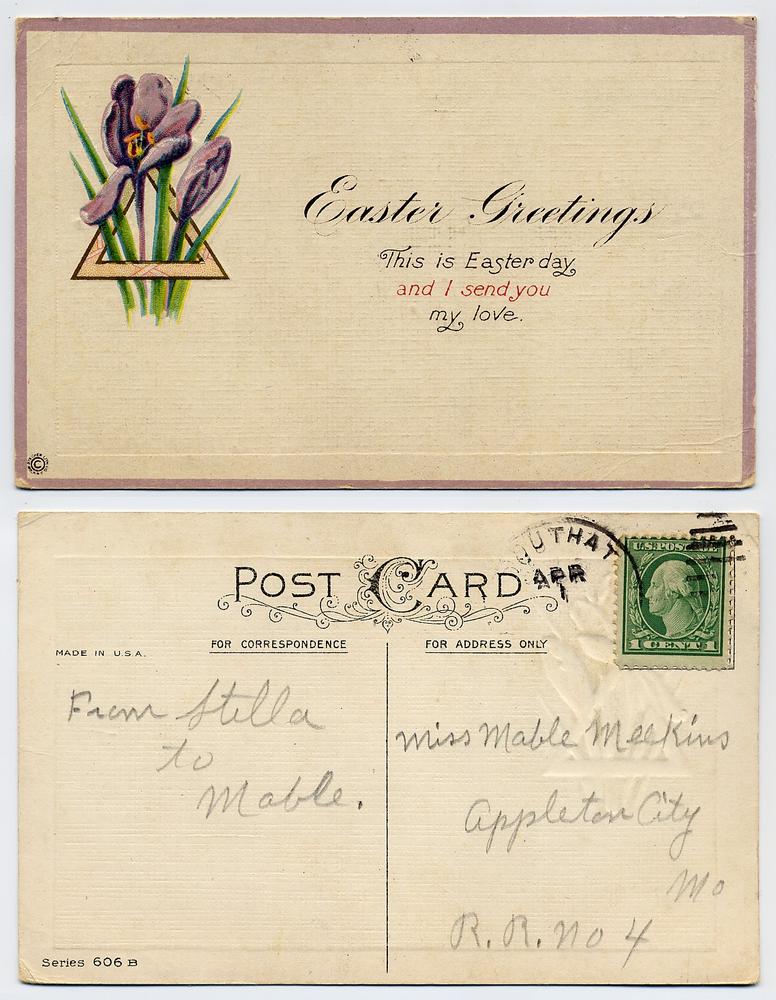 Easter Greetings
This is Easter day
and I send you
my love.
POST CARD
APR
1
U.S. POSTAGE
1 CENT 1
MADE IN U.S.A.
FOR CORRESPONDENCE
FOR ADDRESS ONLY
From Stella
to
Mable.
Miss Mable Meekins
Appleton City
Mo
R. R. No 4
Series 606 B